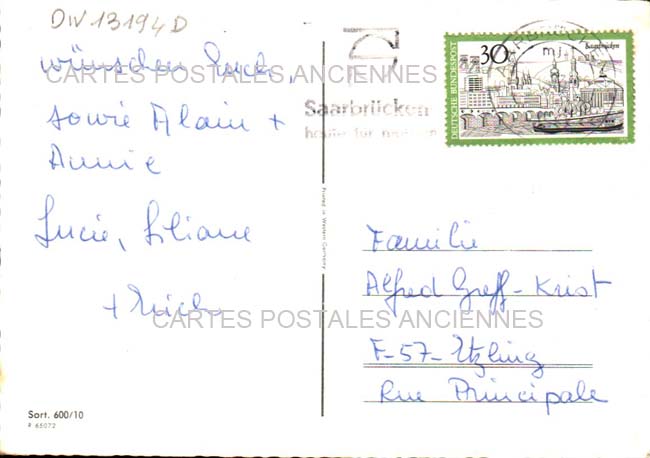 DIV 13194D
wünschen Euch,
sowie Alain +
Annie
Lucie, Liliane
+
CARTES POSTALES ANCIENNES
CARTES POSTALES ANCIENNES
Sort. 600/10
R 65072
Printed in Western Germany
Saarbrücken
heute für
DEUTSCHE BUNDESPOST
30
Saarbrücken
Familie
Alfred Greff-Krist
F-57-Etzling
Rue Principale